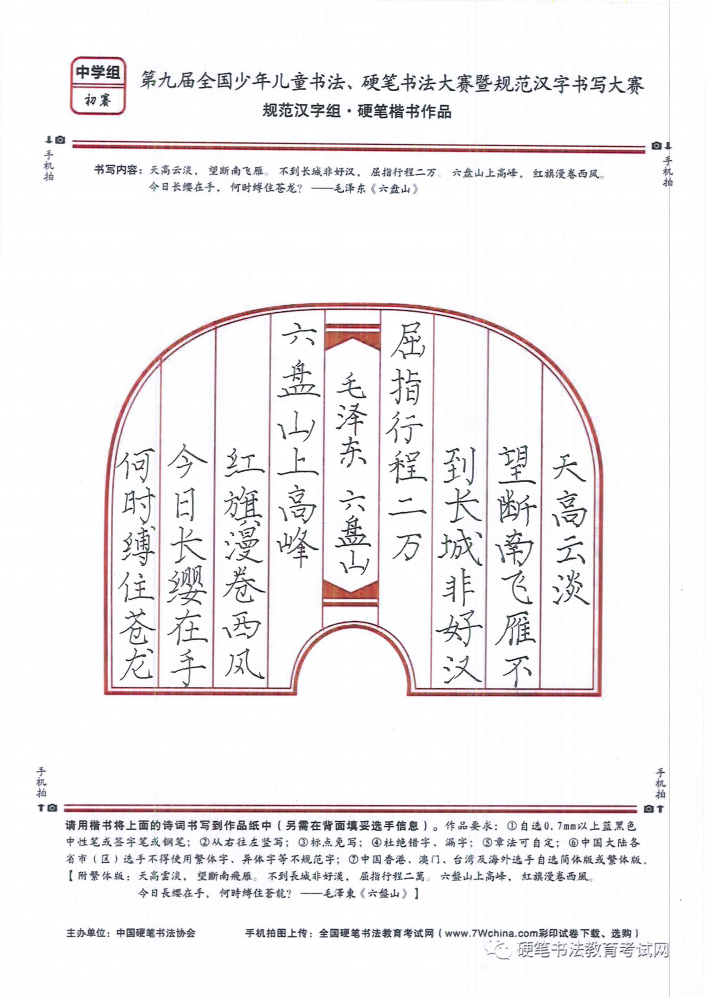 中学组
初赛
第九届全国少年儿童书法、硬笔书法大赛暨规范汉字书写大赛
规范汉字组·硬笔楷书作品
手机拍
手机拍
书写内容：天高云淡，望断南飞雁。不到长城非好汉，屈指行程二万。六盘山上高峰，红旗漫卷西风。
今日长缨在手，何时缚住苍龙？——毛泽东《六盘山》
天高云淡
望断南飞雁不
到长城非好汉
屈指行程二万
毛泽东 六盘山
六盘山上高峰
红旗漫卷西风
今日长缨在手
何时缚住苍龙
手机拍
手机拍
请用楷书将上面的诗词书写到作品纸中（另需在背面填妥选手信息）。作品要求：①自选0.7mm以上蓝黑色
中性笔或签字笔或钢笔；②从右往左竖写；③标点免写；④杜绝错字、漏字；⑤章法可自定；⑥中国大陆各
省市（区）选手不得使用繁体字、异体字等不规范字；⑦中国香港、澳门、台湾及海外选手自选简体版或繁体版。
【附繁体版：天高雲淡，望斷南飛雁。不到長城非好漢，屈指行程二萬。六盤山上高峰，紅旗漫卷西風。
今日長纓在手，何時縛住蒼龍？——毛澤東《六盤山》】
主办单位：中国硬笔书法协会
手机拍图上传：全国硬笔书法教育考试网（www.7Wchina.com彩印试卷下载、选购）
硬笔书法教育考试网